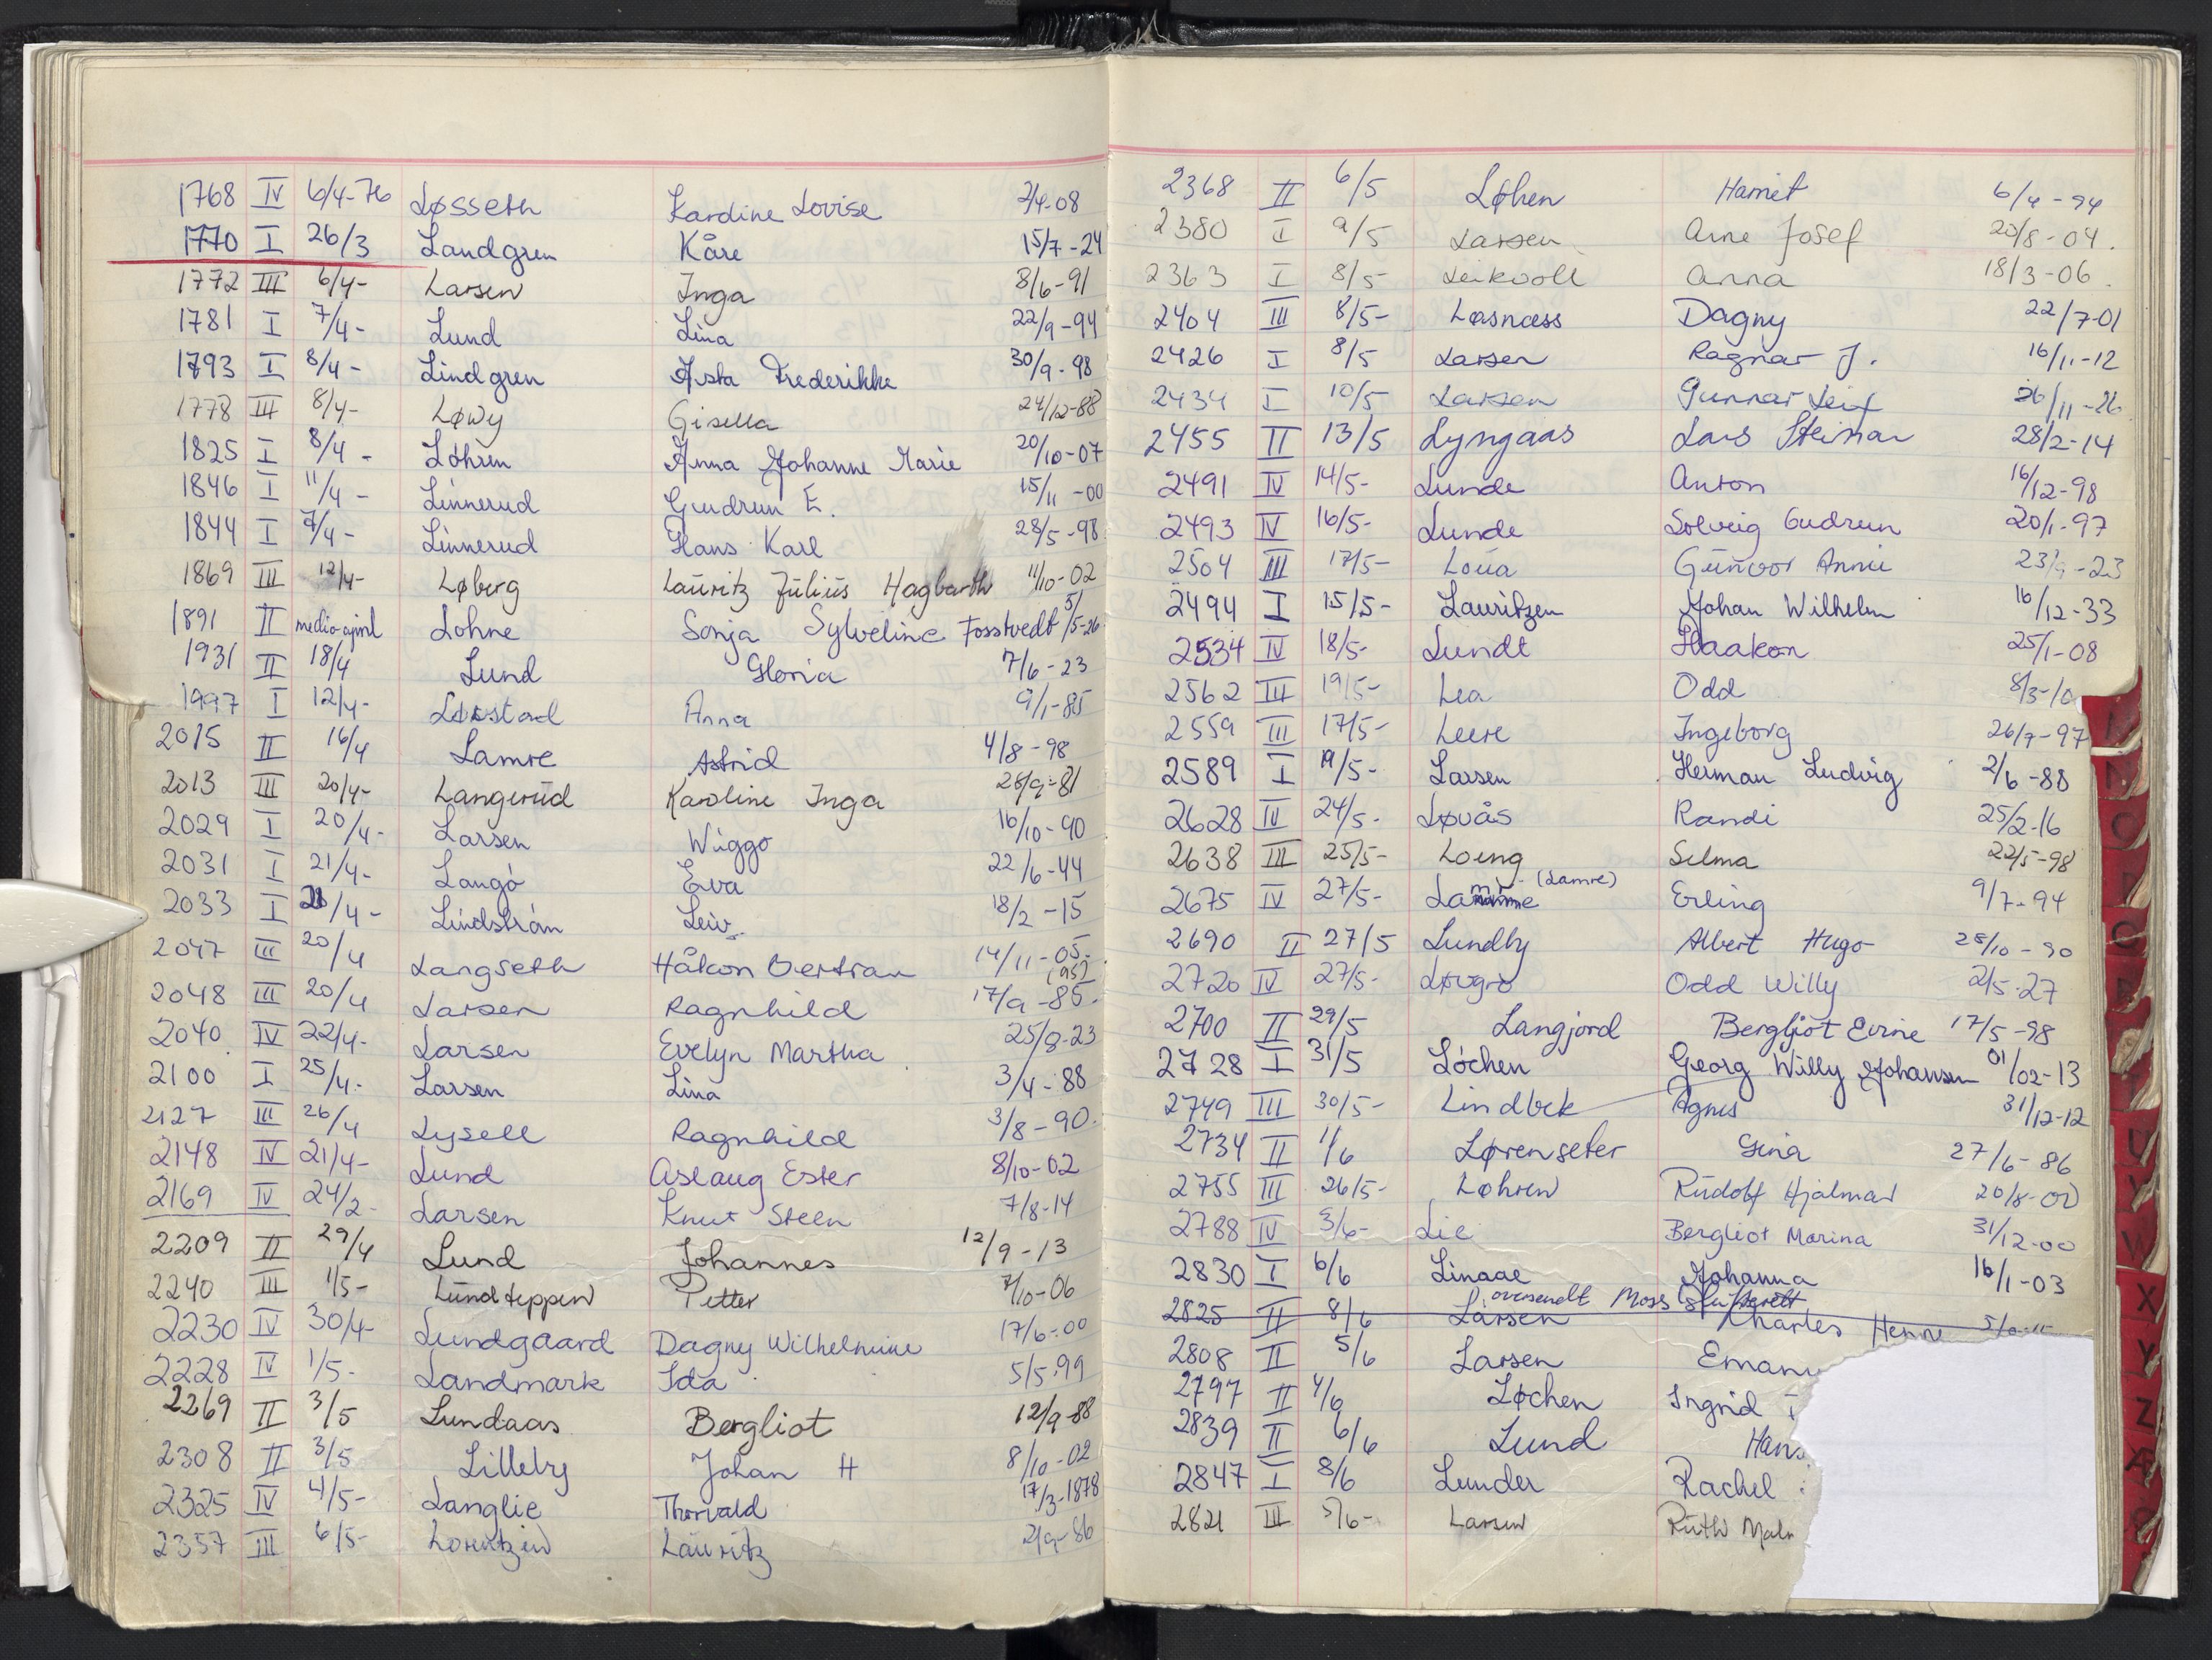 1768 IV 6/4-76 Løsseth Kardine Lovise 2/4-08
1770 I 26/3 Landgren Kåre 15/7-24
1772 III 6/4- Larsen Inga 8/6-91
1781 I 7/4- Lund Lina 22/9-94
1793 I 8/4- Lindgren Asta Frederikke 30/9-98
1778 III 8/4- Løwy Gisella 24/12-88
1825 I 8/4- Löhren Anna Johanne Marie 20/10-07
1846 I 11/4- Linnerud Gudrun E. 15/11-00
1844 I 7/4- Linnerud Hans Karl 28/5-98
1869 III 12/4- Løberg Lauritz Julius Hagbarth 11/10-02
1891 II medio april Lohne Sonja Sylveline Fosstvedt 5/5-26
1931 II 18/4 Lund Gloria 7/6-23
1997 I 12/4- Løkstad Anna 9/1-85
2015 II 16/4 Lamre Astrid 4/8-98
2013 III 20/4- Langerud Karoline Inga 28/9-81
2029 I 20/4- Larsen Wiggo 16/10-90
2031 I 21/4- Langö Eva 22/6-44
2033 I 21/4- Lindstrøm Leiv 18/2-15
2047 III 20/4 Langseth Håkon Bertran 14/11-05-
2048 III 20/4 Larsen Ragnhild 17/9-85-
2040 IV 22/4- Larsen Evelyn Martha 25/8-23
2100 I 25/4- Larsen Lina 3/4-88
2127 III 26/4 Lysell Ragnhild 3/8-90
2148 IV 21/4- Lund Aslaug Ester 8/10-02
2169 IV 24/2- Larsen Knut Steen 7/8-14
2209 II 29/4 Lund Johannes 12/9-13
2240 III 1/5- Lundteppen Petter 7/10-06
2230 IV 30/4- Lundgaard Dagny Wilhelmine 17/6-00
2228 IV 1/5- Landmark Ida 5/5-99
2269 II 3/5 Lundaas Bergliot 12/9-88
2308 II 3/5 Lilleby Johan H 8/10-02
2325 IV 4/5- Langlie Thorvald 17/3-1878
2357 III 6/5- Lorentzen Lauritz 2/9-86
2368 II 6/5 Løhen Harriet 6/4-94
2380 I 9/5 Larsen Arne Josef 20/8-04.
2363 I 8/5- Leikvoll Anna 18/3-06.
2404 III 8/5- Løsnæss Dagny 22/7-01
2426 I 8/5 Larsen Ragnar J. 16/11-12
2434 I 10/5 Larsen Gunnar Leif 26/11-26
2455 II 13/5 Lyngaas Lars Steinar 28/2-14
2491 IV 14/5- Lunde Anton 16/12-98
2493 IV 16/5- Lunde Solveig Gudrun 20/1-97
2504 III 17/5- Loua Gunvor Annie 23/9-23
2494 I 15/5- Lauritzen Johan Wilhelm 16/12-33
2534 IV 18/5- Lundt Haakon 25/1-08
2562 III 19/5- Lea Odd 8/3-10
2559 III 17/5- Leere Ingeborg 26/7-97
2589 I 19/5- Larsen Herman Ludvig 2/6-88
2628 IV 24/5- Løvås Randi 25/2-16
2638 III 25/5- Loeng Selma 22/5-98
2675 IV 27/5- Lamre (Lamre) Erling 9/7-94
2690 II 27/5 Lundby Albert Hugo 28/10-90
2720 IV 27/5- Løvgro Odd Willy 2/5-27
2700 II 29/5 Langjord Bergljot Evine 17/5-98
2728 I 31/5 Löchen Georg Willy Johansen 01/02-13
2749 III 30/5- Lindbek Agnes 31/12-12
2734 II 1/6 Lørenseter Gina 27/6-86
2755 III 26/5- Løhren Rudolf Hjalmar 20/8-00
2788 IV 3/6- Lie Bergliot Marina 31/12-00
2830 I 6/6 Linaae Johanna 16/1-03
oversendt Moss
2825 II 8/6 Larsen Charles Henne
2808 II 5/6 Larsen Emanu
2797 II 4/6 Løchen Ingrid
2839 II 6/6 Lund Hans
2847 I 8/6 Lunder Rachel
2821 III 5/6- Larsen Ruth Malm
X
Y
Z